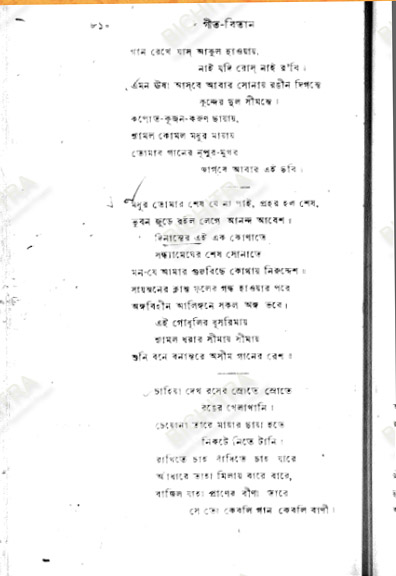 ৮১০ গীত-বিতান
গান রেখে যাস্ আকুল হাওয়ায়,
নাই যদি রোস্ নাই র'বি।
এমন ঊষা আসবে আবার সোনায় রঙীন দিগন্তে
কুন্দের দুল সীমন্তে।
কপোত-কূজন-করুণ ছায়ায়,
শ্যামল কোমল মধুর মায়ায়
তোমার গানের নূপুর-মুখর
জাগবে আবার এই ছবি।
মধুর তোমার শেষ যে না পাই, প্রহর হল শেষ,
ভুবন জুড়ে রইল লেগে আনন্দ আবেশ॥
দিনান্তের এই এক কোণাতে
সন্ধ্যামেঘের শেষ সোনাতে
মন-যে আমার গুঞ্জরিছে কোথায় নিরুদ্দেশ।
সায়ন্তনের ক্লান্ত ফুলের গন্ধ হাওয়ার পরে
অঙ্গবিহীন আলিঙ্গনে সকল অঙ্গ ভরে।
এই গোধূলির ধূসরিমায়
শ্যামল ধরার সীমায় সীমায়
শুনি বনে বনান্তরে অসীম গানের রেশ॥
চাহিয়া দেখ রসের স্রোতে স্রোতে
রঙের খেলাখানি।
চেয়োনা তারে মায়ার ছায়া হতে
নিকটে নিতে টানি।
রাখিতে চাহ বাঁধিতে চাহ যারে
আঁধারে তাহা মিলায় বারে বারে,
বাজিল যাহা প্রাণের বীণা তারে
সে তো কেবলি গান কেবলি বাণী।
BICHITRA